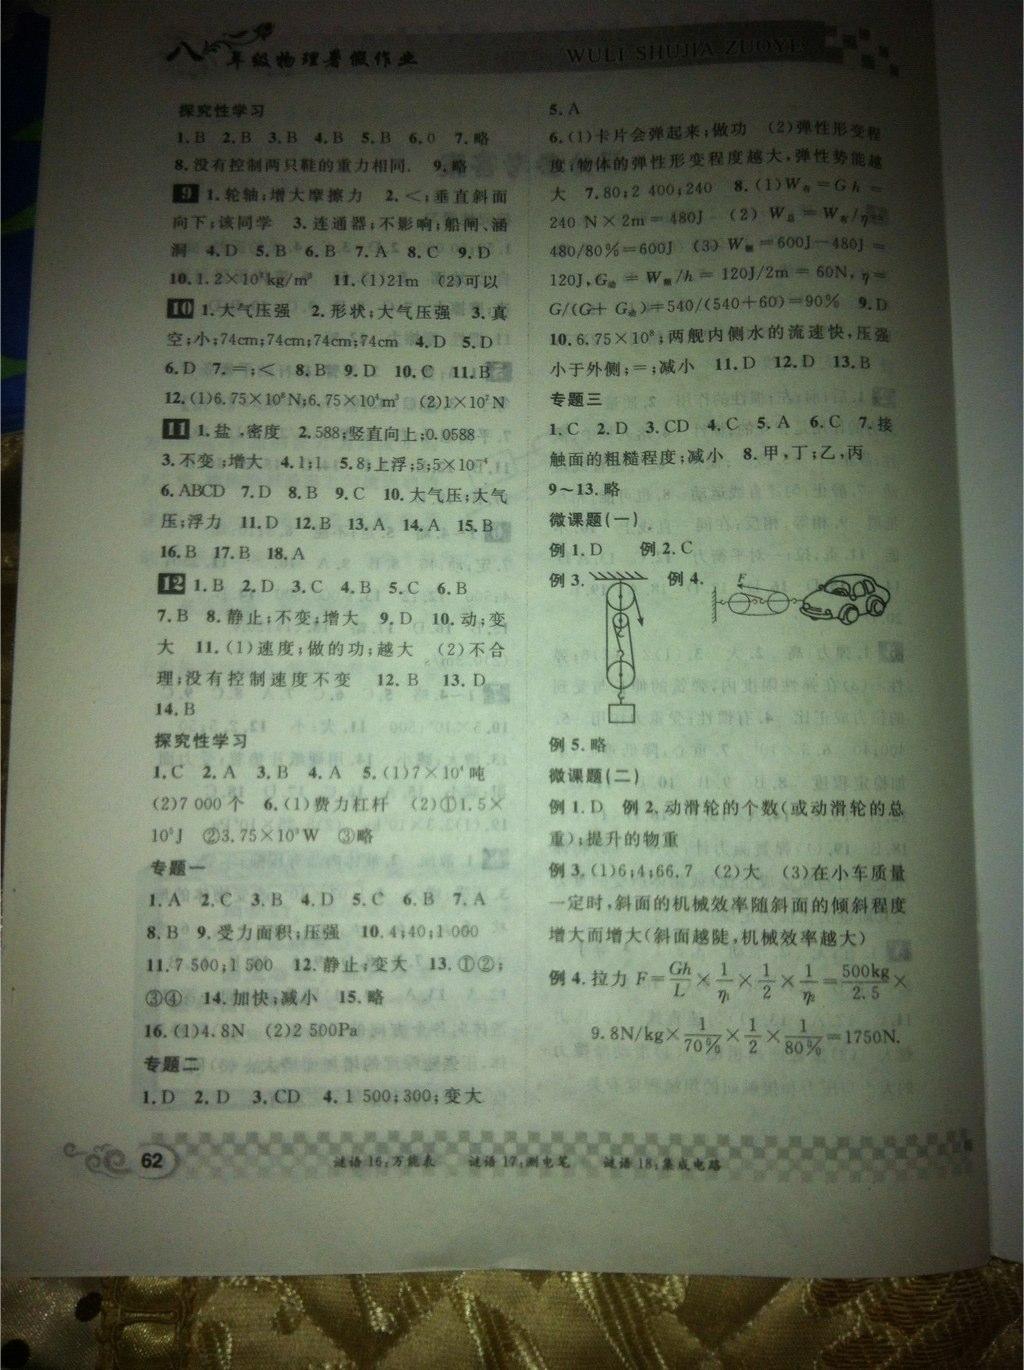 八年级物理暑假作业
WULI SHUJIA ZUOYE
探究性学习
1. B 2. B 3. B 4. B 5. B 6. 0 7. 略
8. 没有控制两只鞋的重力相同. 9. 略
9 1. 轮轴;增大摩擦力 2. <;垂直斜面
向下;该同学 3. 连通器;不影响;船闸、涵
洞 4. D 5. B 6. B 7. A 8. C 9. D
10. 1.2×10³kg/m³ 11. (1)21m (2)可以
10 1. 大气压强 2. 形状;大气压强 3. 真
空;小;74cm;74cm;74cm;74cm 4. D 5. D
6. D 7. =;< 8. B 9. D 10. C 11. B
12. (1)6.75×10⁸N;6.75×10⁴m³ (2)1×10⁷N
11 1. 盐,密度 2. 588;竖直向上;0.0588
3. 不变;增大 4. 1:1 5. 8;上浮;5;5×10⁻⁴
6. ABCD 7. D 8. B 9. C 10. 大气压;大气
压;浮力 11. D 12. B 13. A 14. A 15. B
16. B 17. B 18. A
12 1. B 2. D 3. C 4. B 5. C 6. B
7. B 8. 静止;不变;增大 9. D 10. 动;变
大 11. (1)速度;做的功;越大 (2)不合
理;没有控制速度不变 12. B 13. D
14. B
探究性学习
1. C 2. A 3. B 4. A 5. (1)7×10⁴吨
(2)7 000个 6. (1)费力杠杆 (2)①1.5×
10⁵J ②3.75×10³W ③略
专题一
1. A 2. C 3. B 4. D 5. C 6. B 7. A
8. B 9. 受力面积;压强 10. 4;40;1 000
11. 7 500;1 500 12. 静止;变大 13. ①②;
③④ 14. 加快;减小 15. 略
16. (1)4.8N (2)2 500Pa
专题二
1. D 2. D 3. CD 4. 1 500;300;变大
5. A
6. (1)卡片会弹起来;做功 (2)弹性形变程
度;物体的弹性形变程度越大,弹性势能越
大 7. 80;2 400;240 8. (1)W有=Gh=
240 N×2m=480J (2) W总=W有/η=
480/80%=600J (3) W额=600J-480J=
120J,G动=W额/h=120J/2m=60N,η=
G/(G+G动)=540/(540+60)=90% 9. D
10. 6.75×10⁸;两舰内侧水的流速快,压强
小于外侧;=;减小 11. D 12. D 13. B
专题三
1. C 2. D 3. CD 4. C 5. A 6. C 7. 接
触面的粗糙程度;减小 8. 甲,丁;乙,丙
9~13. 略
微课题(一)
例1. D 例2. C
例3. 例4. F
例5. 略
微课题(二)
例1. D 例2. 动滑轮的个数(或动滑轮的总
重);提升的物重
例3. (1)6;4;66.7 (2)大 (3)在小车质量
一定时,斜面的机械效率随斜面的倾斜程度
增大而增大(斜面越陡,机械效率越大)
例4. 拉力 F=Gh/L×1/η₁×1/2×1/η₂=500kg/2.5×
9.8N/kg×1/70%×1/2×1/80%=1750N.
62 谜语16:万能表 谜语17:测电笔 谜语18:集成电路